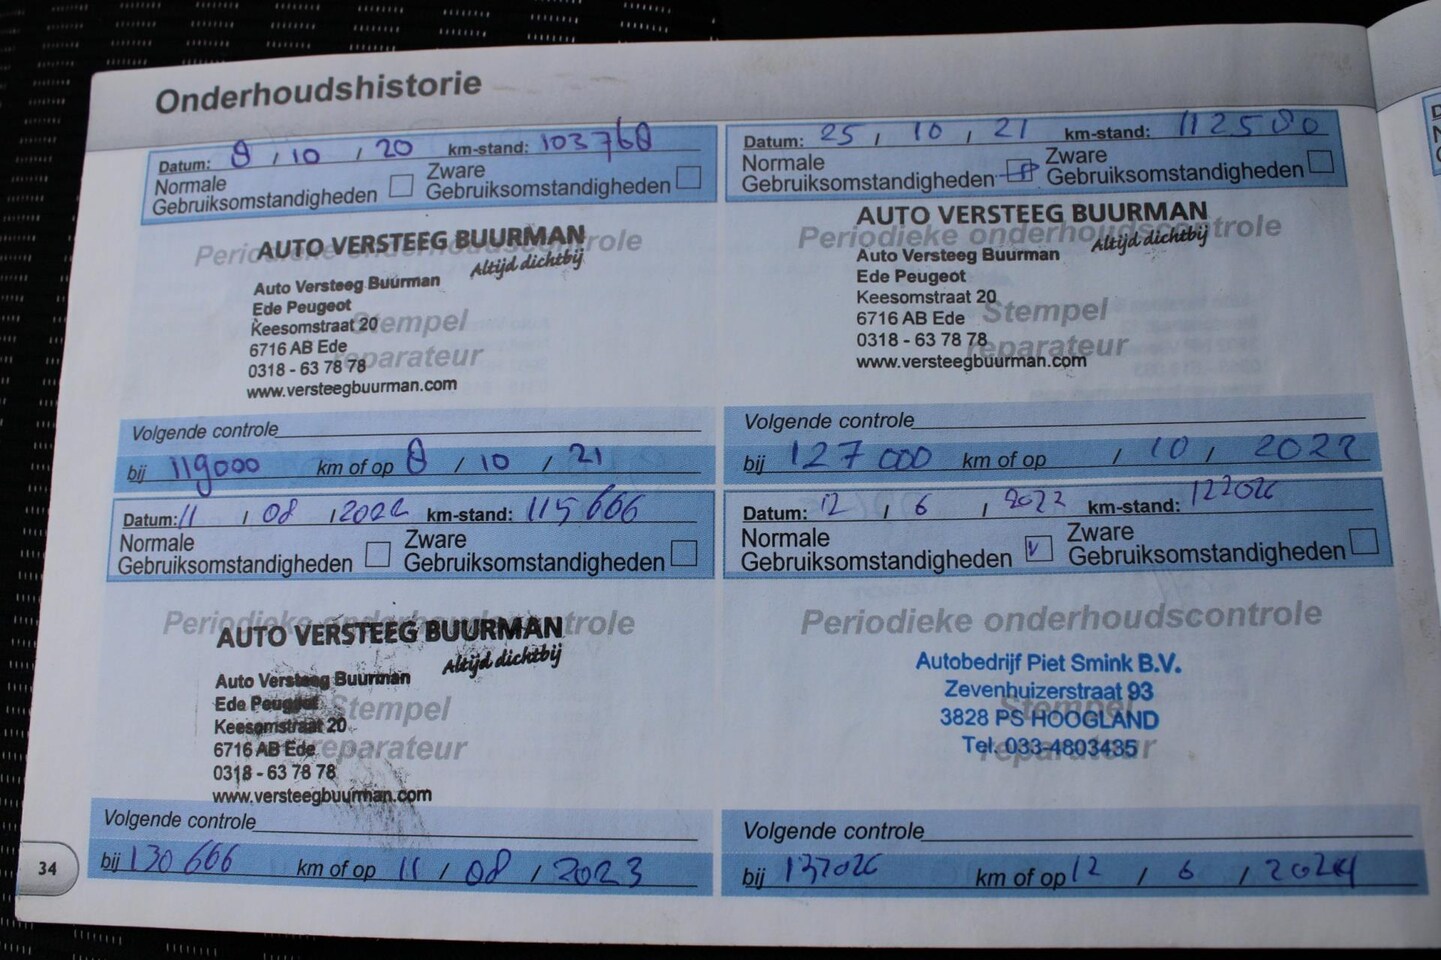 Onderhoudshistorie
Datum: 8 / 10 / 20 km-stand: 103768
Normale Gebruiksomstandigheden
Zware Gebruiksomstandigheden
Periodieke onderhoudscontrole
AUTO VERSTEEG BUURMAN
Altijd dichtbij
Auto Versteeg Buurman
Ede Peugeot
Keesomstraat 20
Stempel
6716 AB Ede
reparateur
0318 - 63 78 78
www.versteegbuurman.com
Volgende controle
bij 119000 km of op 8 / 10 / 21
Datum: 25 / 10 / 21 km-stand: 112580
Normale Gebruiksomstandigheden
Zware Gebruiksomstandigheden
AUTO VERSTEEG BUURMAN
Periodieke onderhoudscontrole
Altijd dichtbij
Auto Versteeg Buurman
Ede Peugeot
Keesomstraat 20
Stempel
6716 AB Ede
0318 - 63 78 78
reparateur
www.versteegbuurman.com
Volgende controle
bij 127000 km of op / 10 / 2022
Datum: 11 / 08 / 2022 km-stand: 115666
Normale Gebruiksomstandigheden
Zware Gebruiksomstandigheden
Periodieke onderhoudscontrole
AUTO VERSTEEG BUURMAN
Altijd dichtbij
Auto Versteeg Buurman
Ede Peugeot
Stempel
Keesomstraat 20
6716 AB Ede
reparateur
0318 - 63 78 78
www.versteegbuurman.com
Volgende controle
bij 130666 km of op 11 / 08 / 2023
Datum: 12 / 6 / km-stand: 122026
Normale Gebruiksomstandigheden
Zware Gebruiksomstandigheden
Periodieke onderhoudscontrole
Autobedrijf Piet Smink B.V.
Zevenhuizerstraat 93
Stempel
3828 PS HOOGLAND
Tel. 033-4803435
reparateur
Volgende controle
bij 137026 km of op 12 / 6 / 2024
34